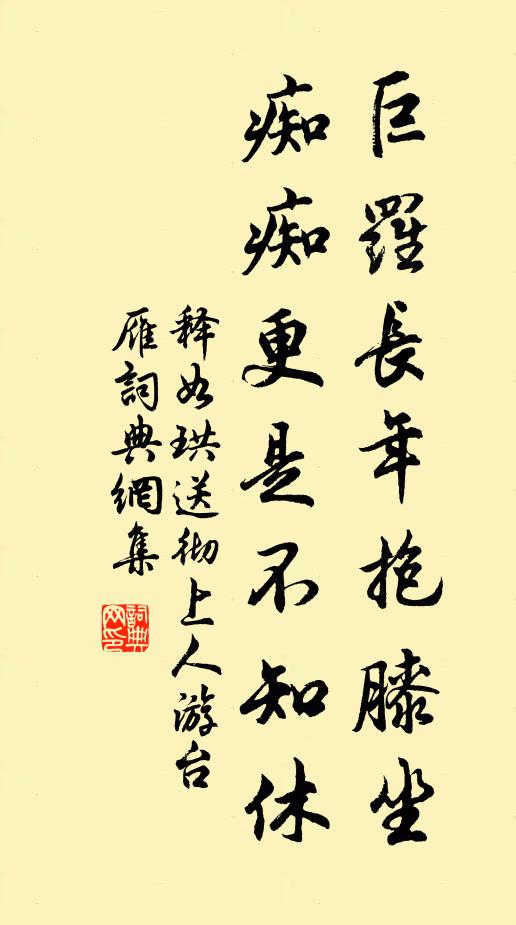 巨羅長年抱膝坐
痴痴更是不知休
释如珙送彻上人游台
雁詞典網集
詞典网印